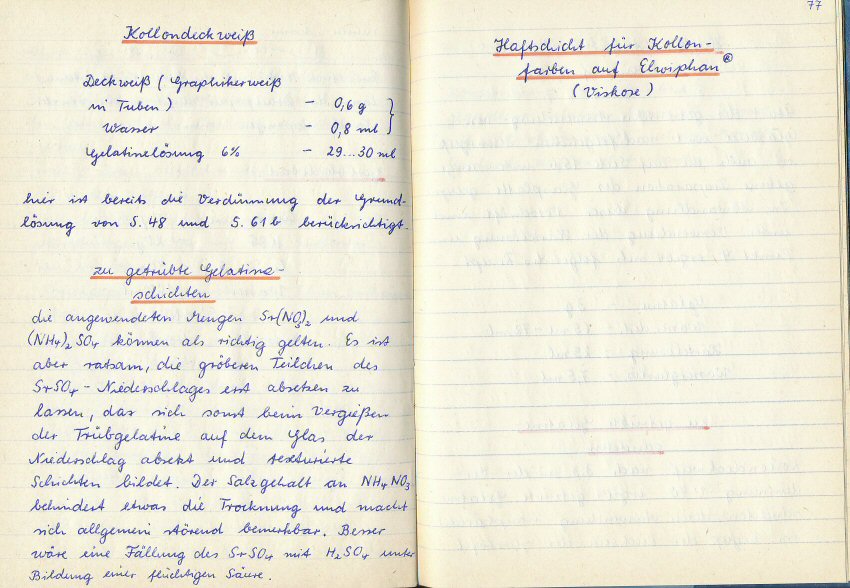 Kollondeckweiß
Deckweiß (Graphikerweiß
in Tuben) – 0,6 g
Wasser – 0,8 ml
Gelatinelösung 6% – 29...30 ml
hier ist bereits die Verdünnung der Grund-
lösung von S. 48 und S. 61b berücksichtigt.
zu getrübte Gelatine-
schichten
die angewendeten Mengen Sr(NO3)2 und
(NH4)2SO4 können als richtig gelten. Es ist
aber ratsam, die gröberen Teilchen des
SrSO4-Niederschlages erst absetzen zu
lassen, das sich sonst beim Vergießen
der Trübgelatine auf dem Glas der
Niederschlag absetzt und texturierte
Schichten bildet. Der Salzgehalt an NH4NO3
behindert etwas die Trocknung und macht
sich allgemein störend bemerkbar. Besser
wäre eine Fällung des SrSO4 mit H2SO4 unter
Bildung einer flüchtigen Säure.
77
Haftschicht für Kollon-
farben auf Elwiphan®
(Viskose)